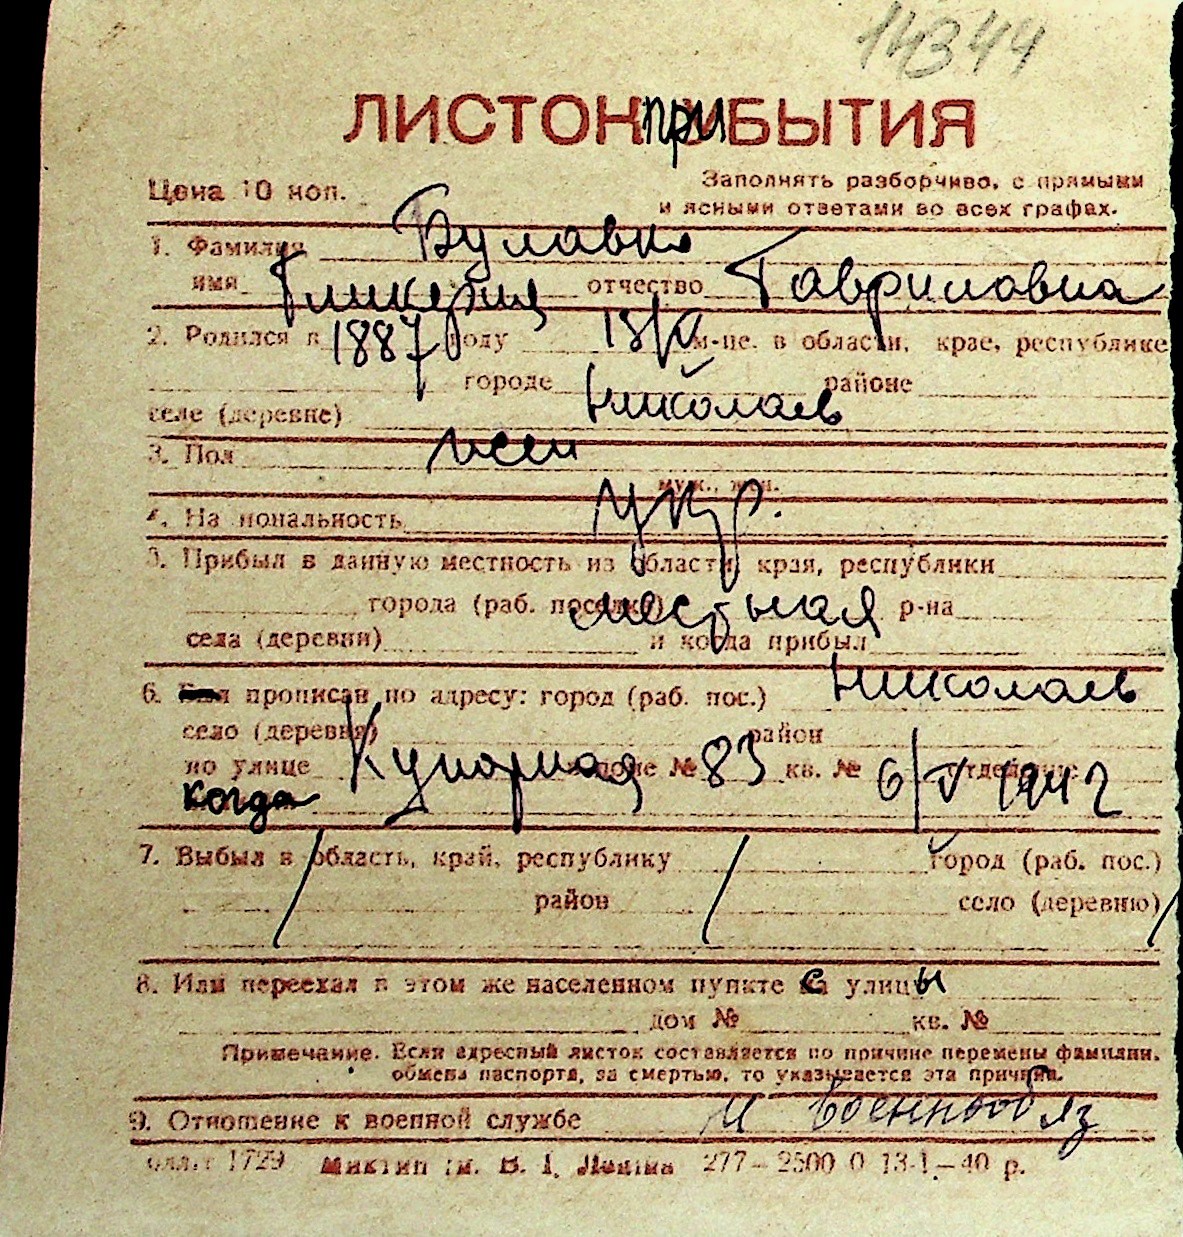 14344
ЛИСТОК ПРИБЫТИЯ
Цена 10 коп. Заполнять разборчиво, с прямыми
и ясными ответами во всех графах.
1. Фамилия Булавко
имя Гликерия отчество Гавриловна
2. Родился в 1887 году 13/V м-це. в области, крае, республике
городе Николаев районе
селе (деревне)
3. Пол жен
муж., жен.
4. Национальность Укр.
5. Прибыл в данную местность из области, края, республики
города (раб. поселка) местная р-на
села (деревни) и когда прибыл
6. прописан по адресу: город (раб. пос.) Николаев
село (деревня) район
по улице Кузнечная доме № 83 кв. № отделение
когда 6/V 1942
7. Выбыл в область, край, республику город (раб. пос.)
район село (деревню)
8. Или переехал в этом же населенном пункте с улицы
дом № кв. №
Примечание. Если адресный листок составляется по причине перемены фамилии,
обмена паспорта, за смертью, то указывается эта причина.
9. Отношение к военной службе н военнообяз
1729 им. В. І. Леніна 277–2500 0 13-1–40 р.